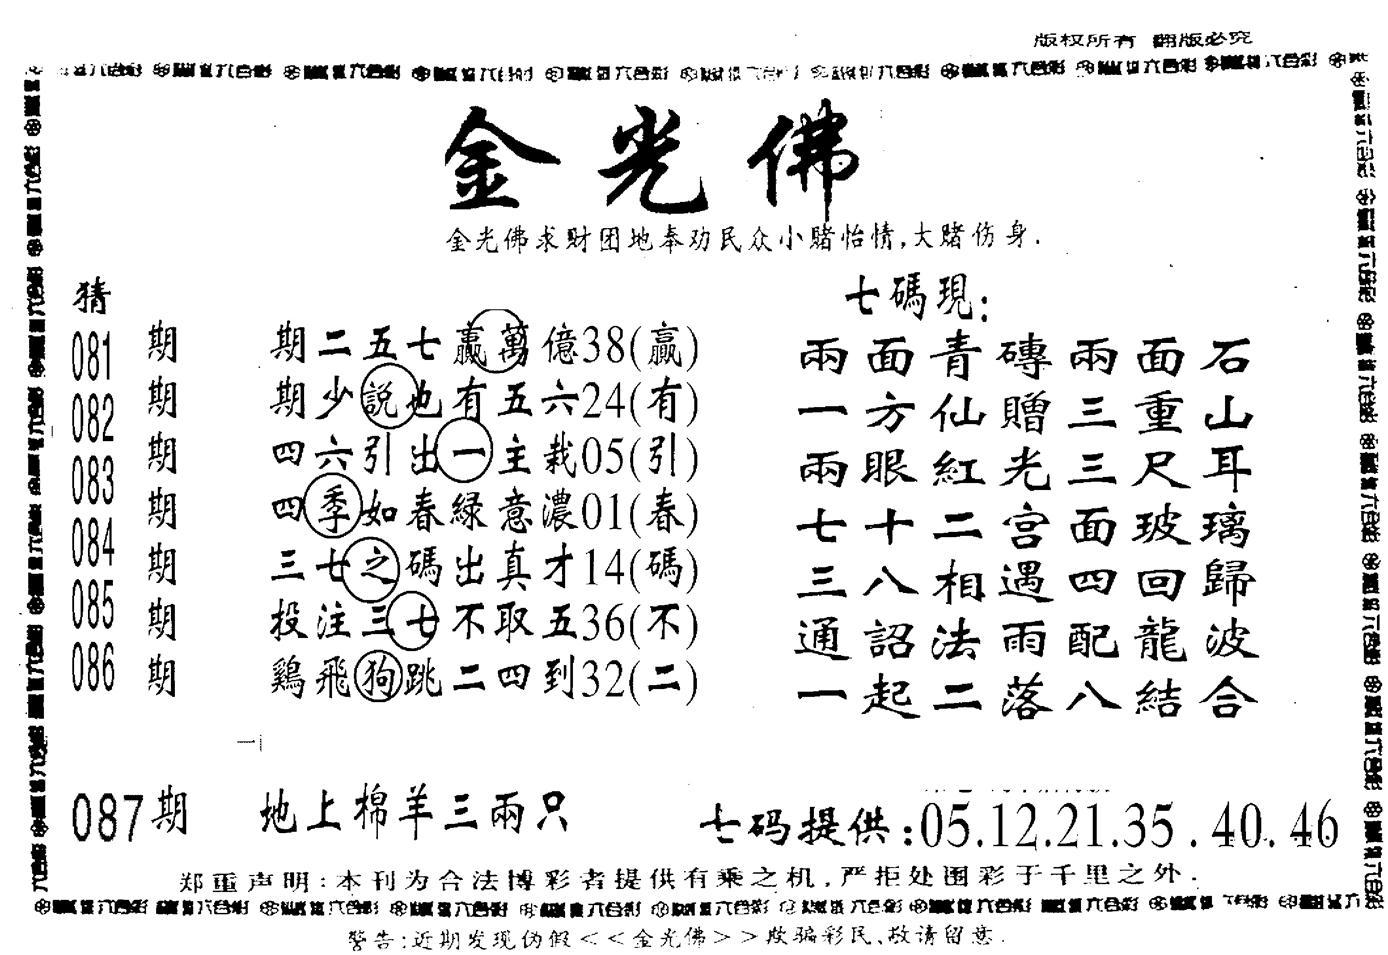 版权所有 翻版必究
金光佛
金光佛求财团地奉劝民众小赌怡情,大赌伤身.
猜
081期 期二五七贏萬億38(贏)
082期 期少説也有五六24(有)
083期 四六引出一主栽05(引)
084期 四季如春緑意濃01(春)
085期 三七之碼出真才14(碼)
086期 投注三七不取五36(不)
期 鷄飛狗跳二四到32(二)
七碼現:
兩面青磚兩面石
一方仙贈三重山
兩眼紅光三尺耳
七十二宫面玻璃
三八相遇四回歸
通詔法雨配龍波
一起二落八結合
087期 地上棉羊三兩只
七码提供:05.12.21.35.40.46
郑重声明:本刊为合法博彩者提供有乘之机,严拒处围彩于千里之外.
警告:近期发现伪假<<金光佛>>欺骗彩民、敬请留意.